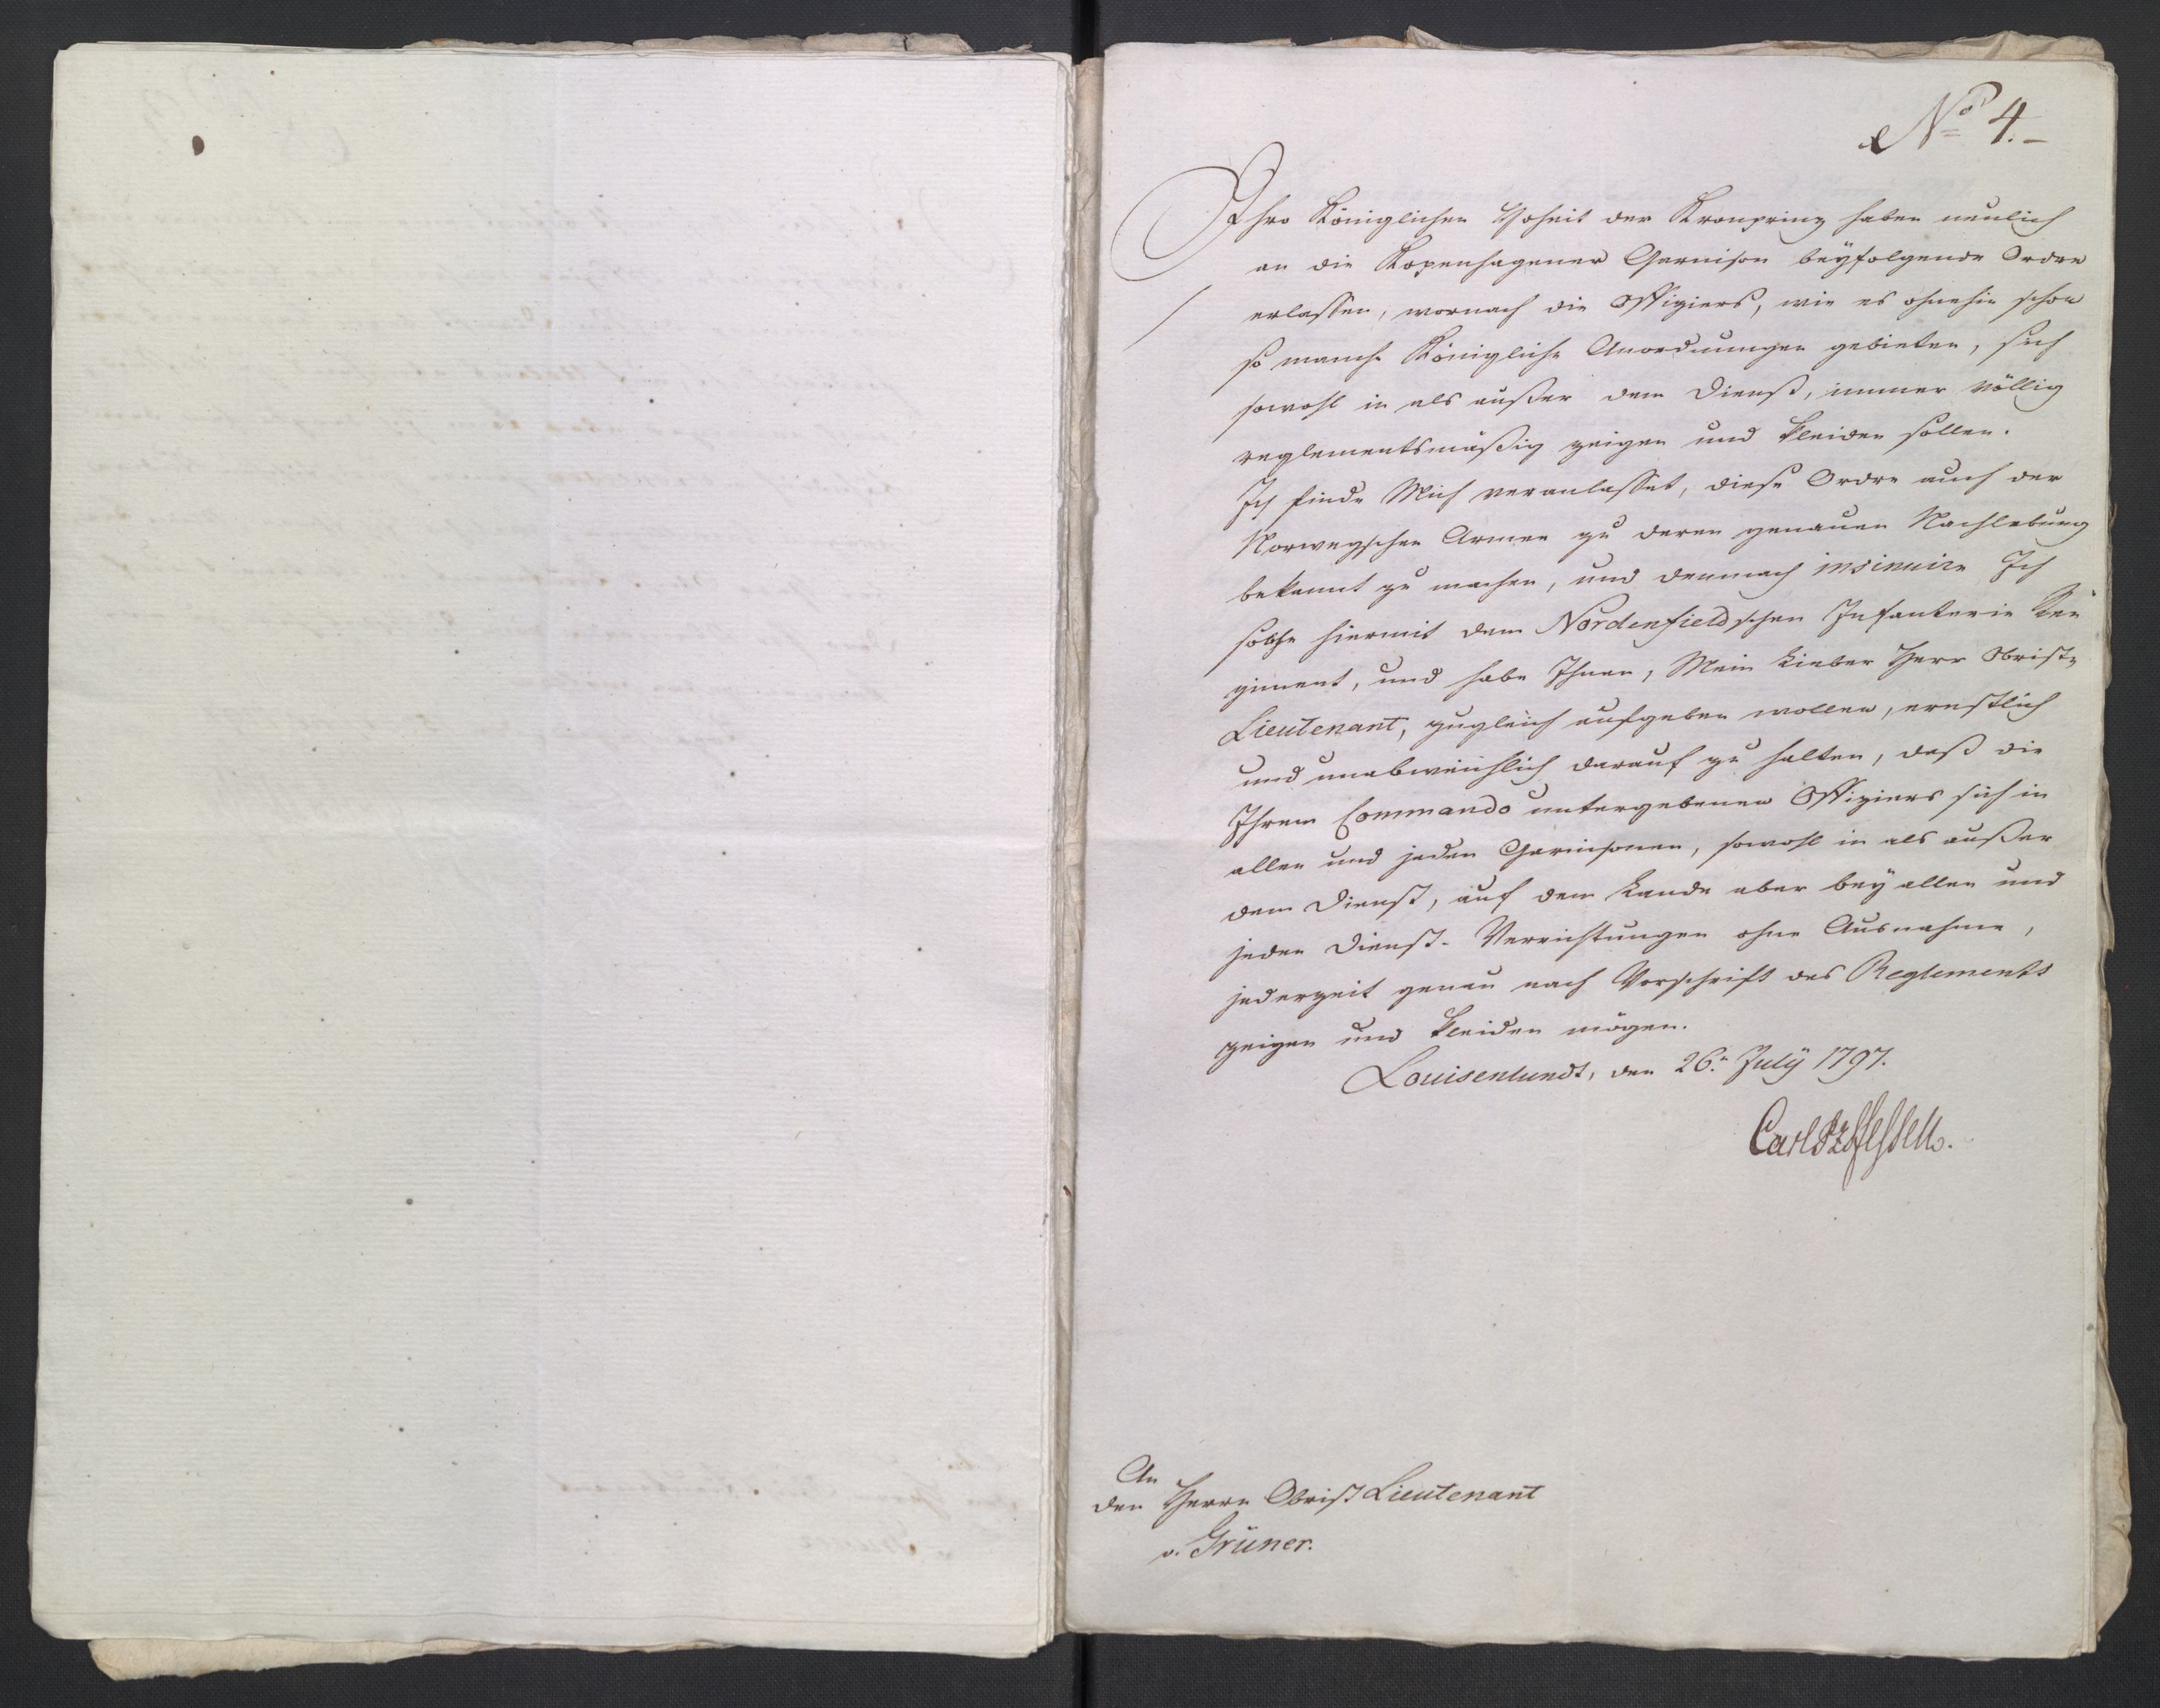 No 4.-
Ihro Königlichen Hoheit der Kronprinz haben neulich
an die Kopenhagener Garnison beyfolgende Ordre
/ erlassen, wornach die Offiziers, wie es ohnehin schon
so manche Königliche Anordnungen gebieten, sich
sowohl in als außer dem Dienst, immer völlig
reglementsmäßig zeigen und kleiden sollen.
Ich finde Mich veranlasset, diese Ordre auch der
Norwegschen Armee zu deren genauen Nachlebung
bekannt zu machen, und demnach insinuire Ich
solche hiermit dem Nordenfieldschen Infanterie Re-
giment, und habe Ihnen, Mein Lieber Herr Obrist-
Lieutenant, zugleich aufgeben wollen, ernstlich
und unabweichlich darauf zu halten, daß die
Ihrem Commando untergebenen Offiziers sich in
allen und jeden Garnisonen, sowohl in als außer
dem Dienst, auf dem Lande aber bey allen und
jeden Dienst-Verrichtungen ohne Ausnahme,
jederzeit genau nach Vorschrift des Reglements
zeigen und kleiden mögen.
Louisenlundt, den 26n July 1797.
Carl PzHessen.
An
den Herrn Obrist Lieutenant
v. Grüner.